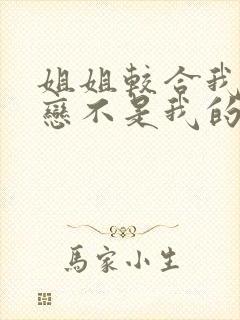 姐姐較合我
戀不是我的
馬家小生